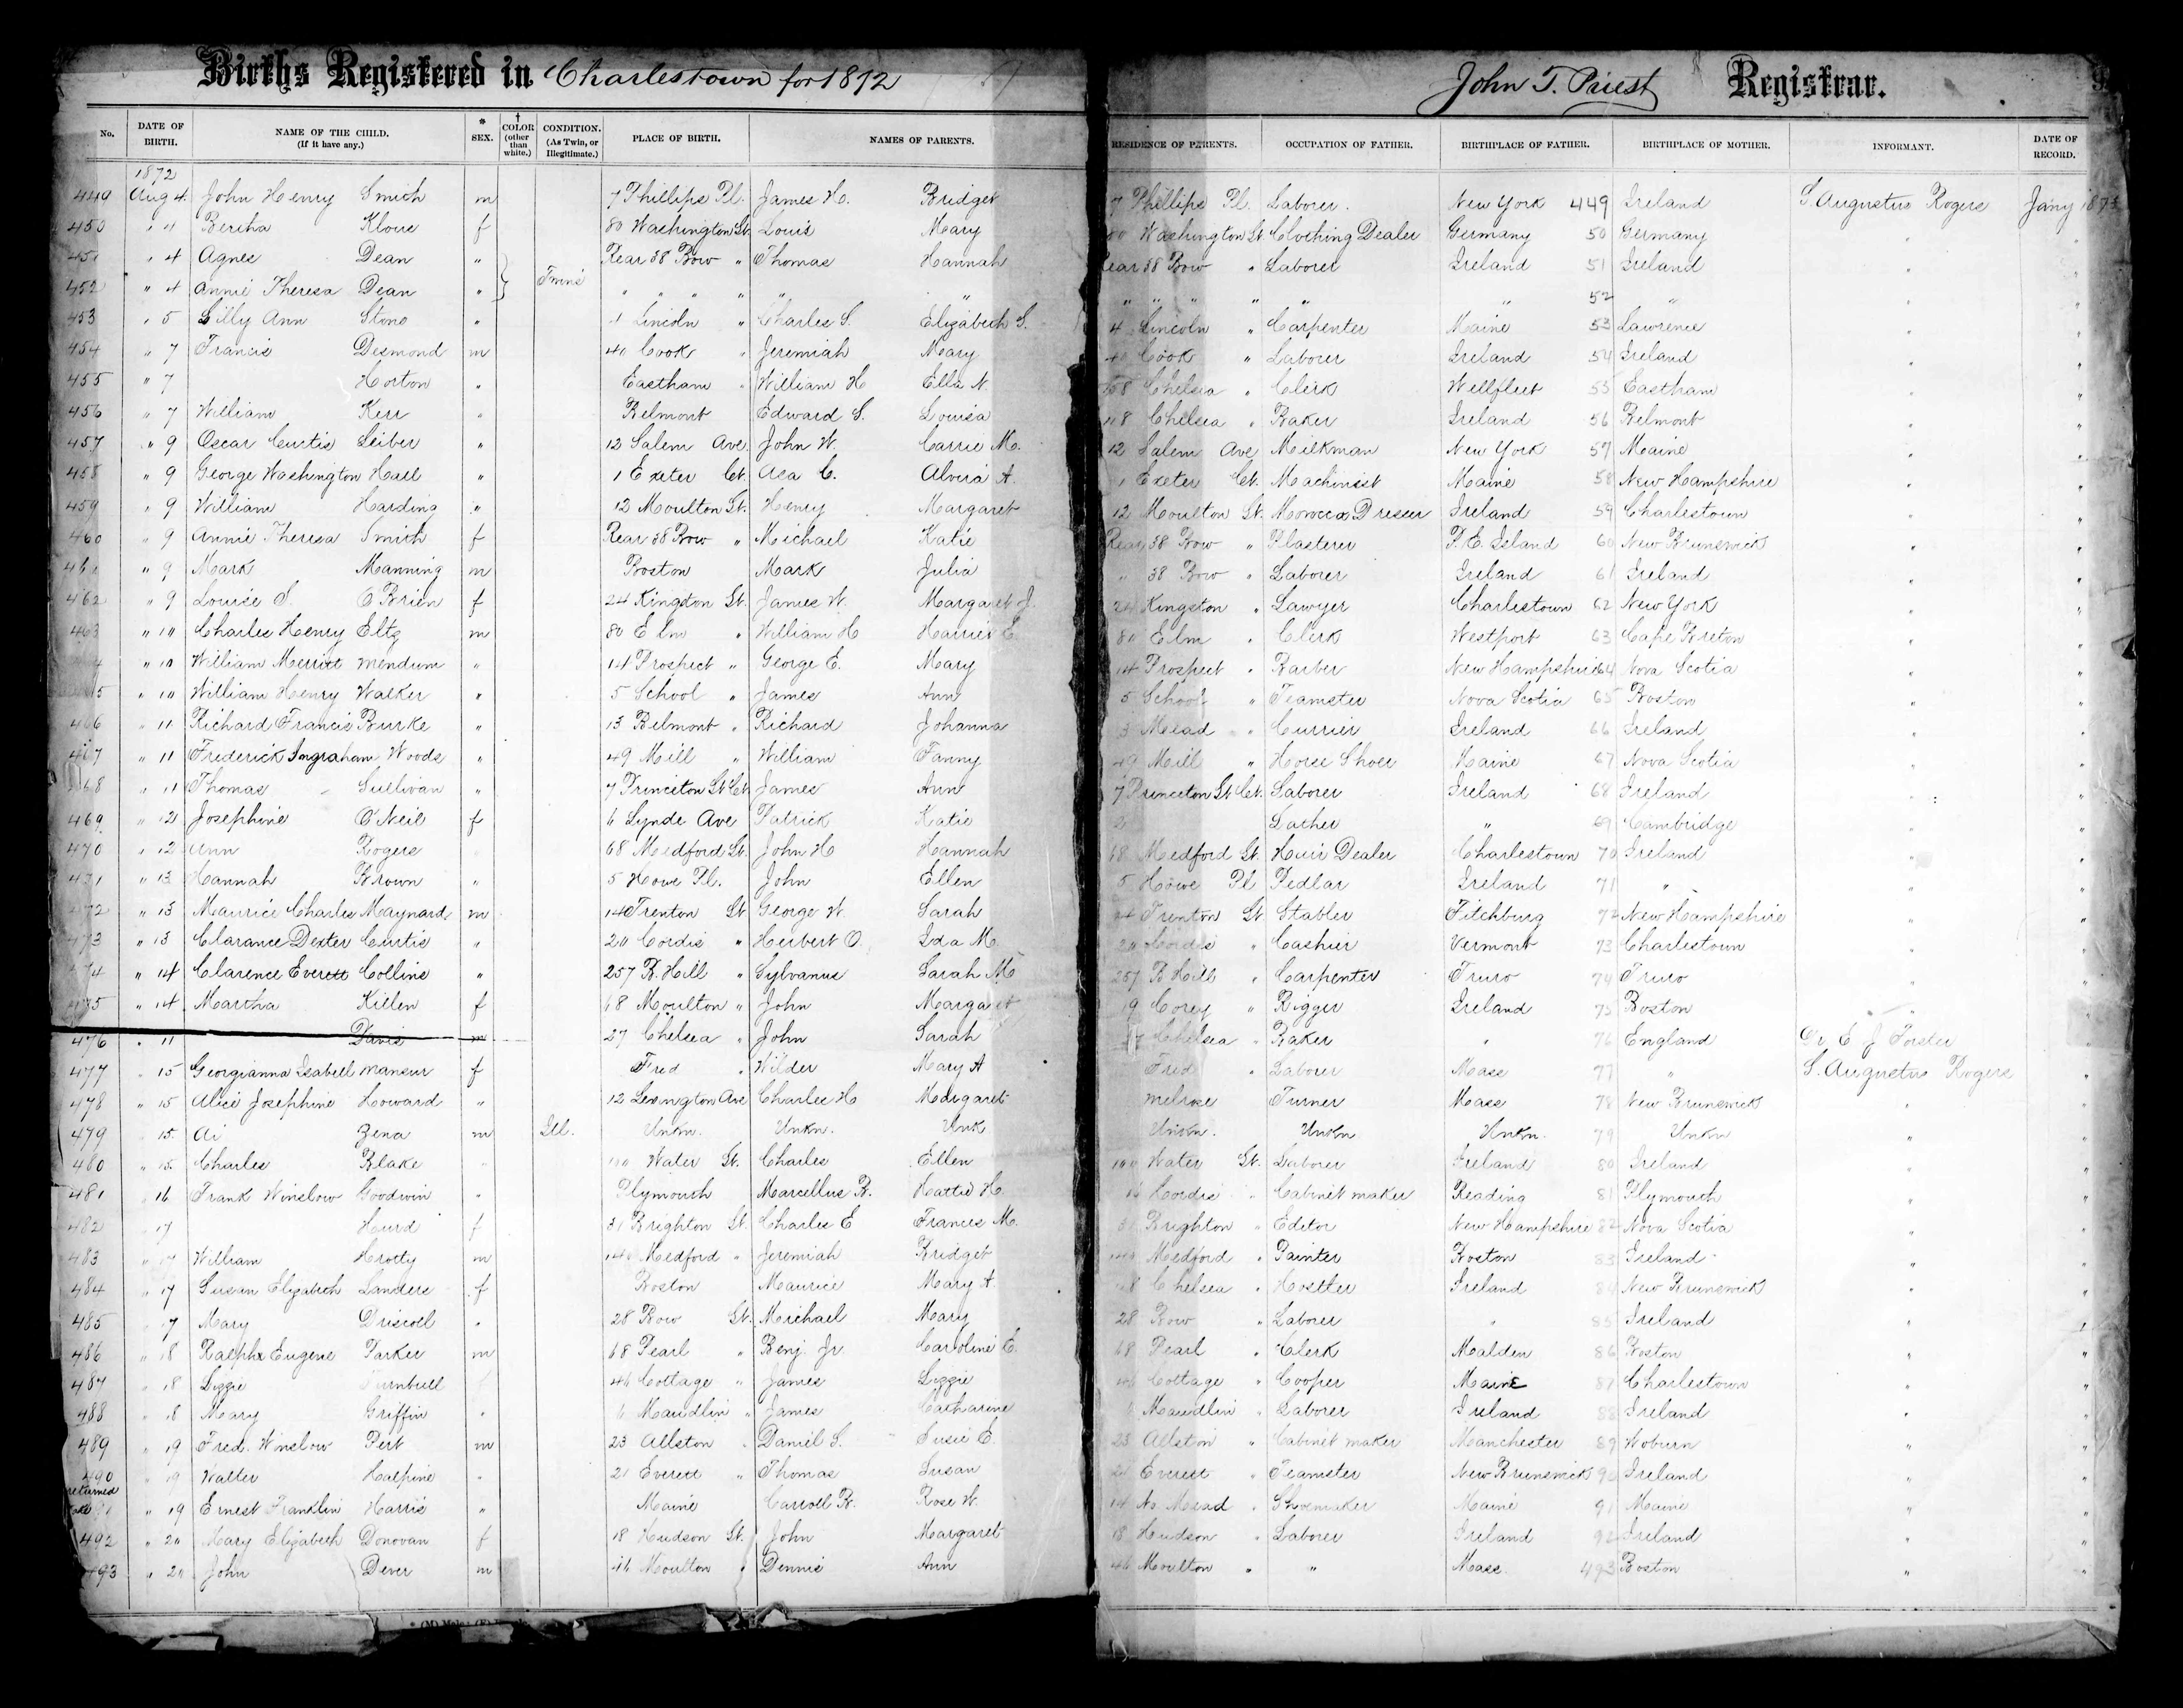 Births Registered in Charlestown for 1872 John T. Priest Registrar.
No. DATE OF BIRTH. NAME OF THE CHILD. (If it have any.) * SEX. † COLOR (other than white.) CONDITION. (As Twin, or Illegitimate.) PLACE OF BIRTH. NAMES OF PARENTS. RESIDENCE OF PARENTS. OCCUPATION OF FATHER. BIRTHPLACE OF FATHER. BIRTHPLACE OF MOTHER. INFORMANT. DATE OF RECORD.
1872
449 Aug 4. John Henry Smith m 7 Phillips Pl. James H. Bridget 7 Phillips Pl. Laborer. New York 449 Ireland S. Augustus Rogers Jany 1873
450 " 4 Bertha Klous f 80 Washington St. Louis Mary 80 Washington St. Clothing Dealer Germany 50 Germany "
451 " 4 Agnes Dean " Twins Rear 38 Bow " Thomas Hannah Rear 38 Bow " Laborer Ireland 51 Ireland "
452 " 4 Annie Theresa Dean " " " " " " " " " " " " " 52 " "
453 " 5 Lilly Ann Stone " 4 Lincoln " Charles S. Elizabeth S. 4 Lincoln " Carpenter Maine 53 Lawrence "
454 " 7 Francis Desmond m 40 Cook " Jeremiah Mary 40 Cook " Laborer Ireland 54 Ireland "
455 " 7 Horton " Eastham " William H Ella N. 158 Chelsea " Clerk Wellfleet 55 Eastham "
456 " 7 William Kerr " Belmont Edward S. Louisa 118 Chelsea " Baker Ireland 56 Belmont "
457 " 9 Oscar Curtis Leiber " 12 Salem Ave. John W. Carrie M. 12 Salem Ave Milkman New York 57 Maine "
458 " 9 George Washington Hall " 1 Exeter Ct. Asa C. Alvira A. 1 Exeter Ct. Machinist Maine 58 New Hampshire "
459 " 9 William Harding " 12 Moulton St. Henry Margaret 12 Moulton St. Morocco Dresser Ireland 59 Charlestown "
460 " 9 Annie Theresa Smith f Rear 38 Bow " Michael Katie Rear 38 Bow " Plasterer P. E. Island 60 New Brunswick "
461 " 9 Mark Manning m Boston Mark Julia " 38 Bow " Laborer Ireland 61 Ireland "
462 " 9 Louise S. O'Brien f 24 Kingston St. James W. Margaret J. 24 Kingston " Lawyer Charlestown 62 New York "
463 " 10 Charles Henry Eltz m 80 Elm " William H Harriet E. 80 Elm " Clerk Westport 63 Cape Breton "
" 10 William Merritt Mendum " 14 Prospect " George E. Mary 14 Prospect " Barber New Hampshire 64 Nova Scotia "
" 10 William Henry Walker " 5 School " James Ann 5 School " Teamster Nova Scotia 65 Boston "
466 " 11 Richard Francis Burke " 13 Belmont " Richard Johanna 3 Mead " Currier Ireland 66 Ireland "
467 " 11 Frederick Ingraham Woods " 49 Mill " William Fanny 49 Mill " Horse Shoer Maine 67 Nova Scotia "
468 " 11 Thomas Sullivan " 7 Princeton St Ct. James Ann 7 Princeton St Ct. Laborer Ireland 68 Ireland "
469 " 12 Josephine O'Neil f 6 Lynde Ave Patrick Katie Lather " 69 Cambridge "
470 " 12 Ann Rogers 68 Medford St. John H Hannah 68 Medford St. Hair Dealer Charlestown 70 Ireland "
471 " 13 Hannah Brown " 5 Howe Pl. John Ellen 5 Howe Pl Pedlar Ireland 71 " "
472 " 13 Maurice Charles Maynard m 14 Trenton St George W. Sarah 14 Trenton St Stabler Fitchburg 72 New Hampshire "
473 " 13 Clarance Dexter Curtis " 20 Cordis " Herbert O. Ida M. 20 Cordis " Cashier Vermont 73 Charlestown "
474 " 14 Clarence Everett Collins " 257 B. Hill " Sylvanus Sarah M 257 B Hill " Carpenter Truro 74 Truro "
475 " 14 Martha Killen f 68 Moulton " John Margaret 19 Corey " Rigger Ireland 75 Boston "
476 " 11 Davis m 27 Chelsea " John Sarah 27 Chelsea " Baker " 76 England Dr. E J Forster "
477 " 15 Georgianna Isabell Manser f Fred " Wilder Mary A Fred " Laborer Mass 77 " S. Augustus Rogers "
478 " 15 Alice Josephine Howard " 12 Lexington Ave Charles H Margaret Melrose Turner Mass 78 New Brunswick "
479 " 15. Ai Zena m Ill. Unkn. Unkn. Unk Unkn. Unkn Unkn. 79 Unkn "
480 " 15. Charles Blake " 100 Water St. Charles Ellen 100 Water St. Laborer Ireland 80 Ireland "
481 " 16 Frank Winslow Goodwin " Plymouth Marcellus B. Hattie H. 16 Cordis " Cabinet maker Reading 81 Plymouth "
482 " 17 Hurd f 31 Brighton St. Charles E Frances M. 31 Brighton " Editor New Hampshire 82 Nova Scotia "
483 " 17 William Crotty m 140 Medford " Jeremiah Bridget 140 Medford " Painter Boston 83 Ireland "
484 " 17 Susan Elizabeth Landers f Boston Maurice Mary A. Chelsea " Hostler Ireland 84 New Brunswick "
485 " 17 Mary Driscoll " 28 Bow St. Michael Mary 28 Bow " Laborer " 85 Ireland "
486 " 18 Ralph Eugene Parker m 68 Pearl " Benj. Jr. Caroline E. 68 Pearl " Clerk Malden 86 Boston "
487 " 18 Lizzie Turnbull f 46 Cottage " James Lizzie 46 Cottage " Cooper Maine 87 Charlestown "
488 " 18 Mary Griffin " 6 Maudlin " James Catharine 6 Maudlin " Laborer Ireland 88 Ireland "
489 " 19 Fred. Winslow Pert m 23 Allston " Daniel S. Susie E. 23 Allston " Cabinet maker Manchester 89 Woburn "
490 " 19 Walter Halpine " 21 Everett " Thomas Susan 21 Everett " Teamster New Brunswick 90 Ireland "
returned
491 " 19 Ernest Franklin Harris " Maine Carroll B. Rose W. 14 No. Mead " Shoemaker Maine 91 Maine "
492 " 20 Mary Elizabeth Donovan f 18 Hudson St. John Margaret 18 Hudson " Laborer Ireland 92 Ireland "
493 " 20 John Dever m 46 Moulton " Dennis Ann 46 Moulton " " Mass 493 Boston "